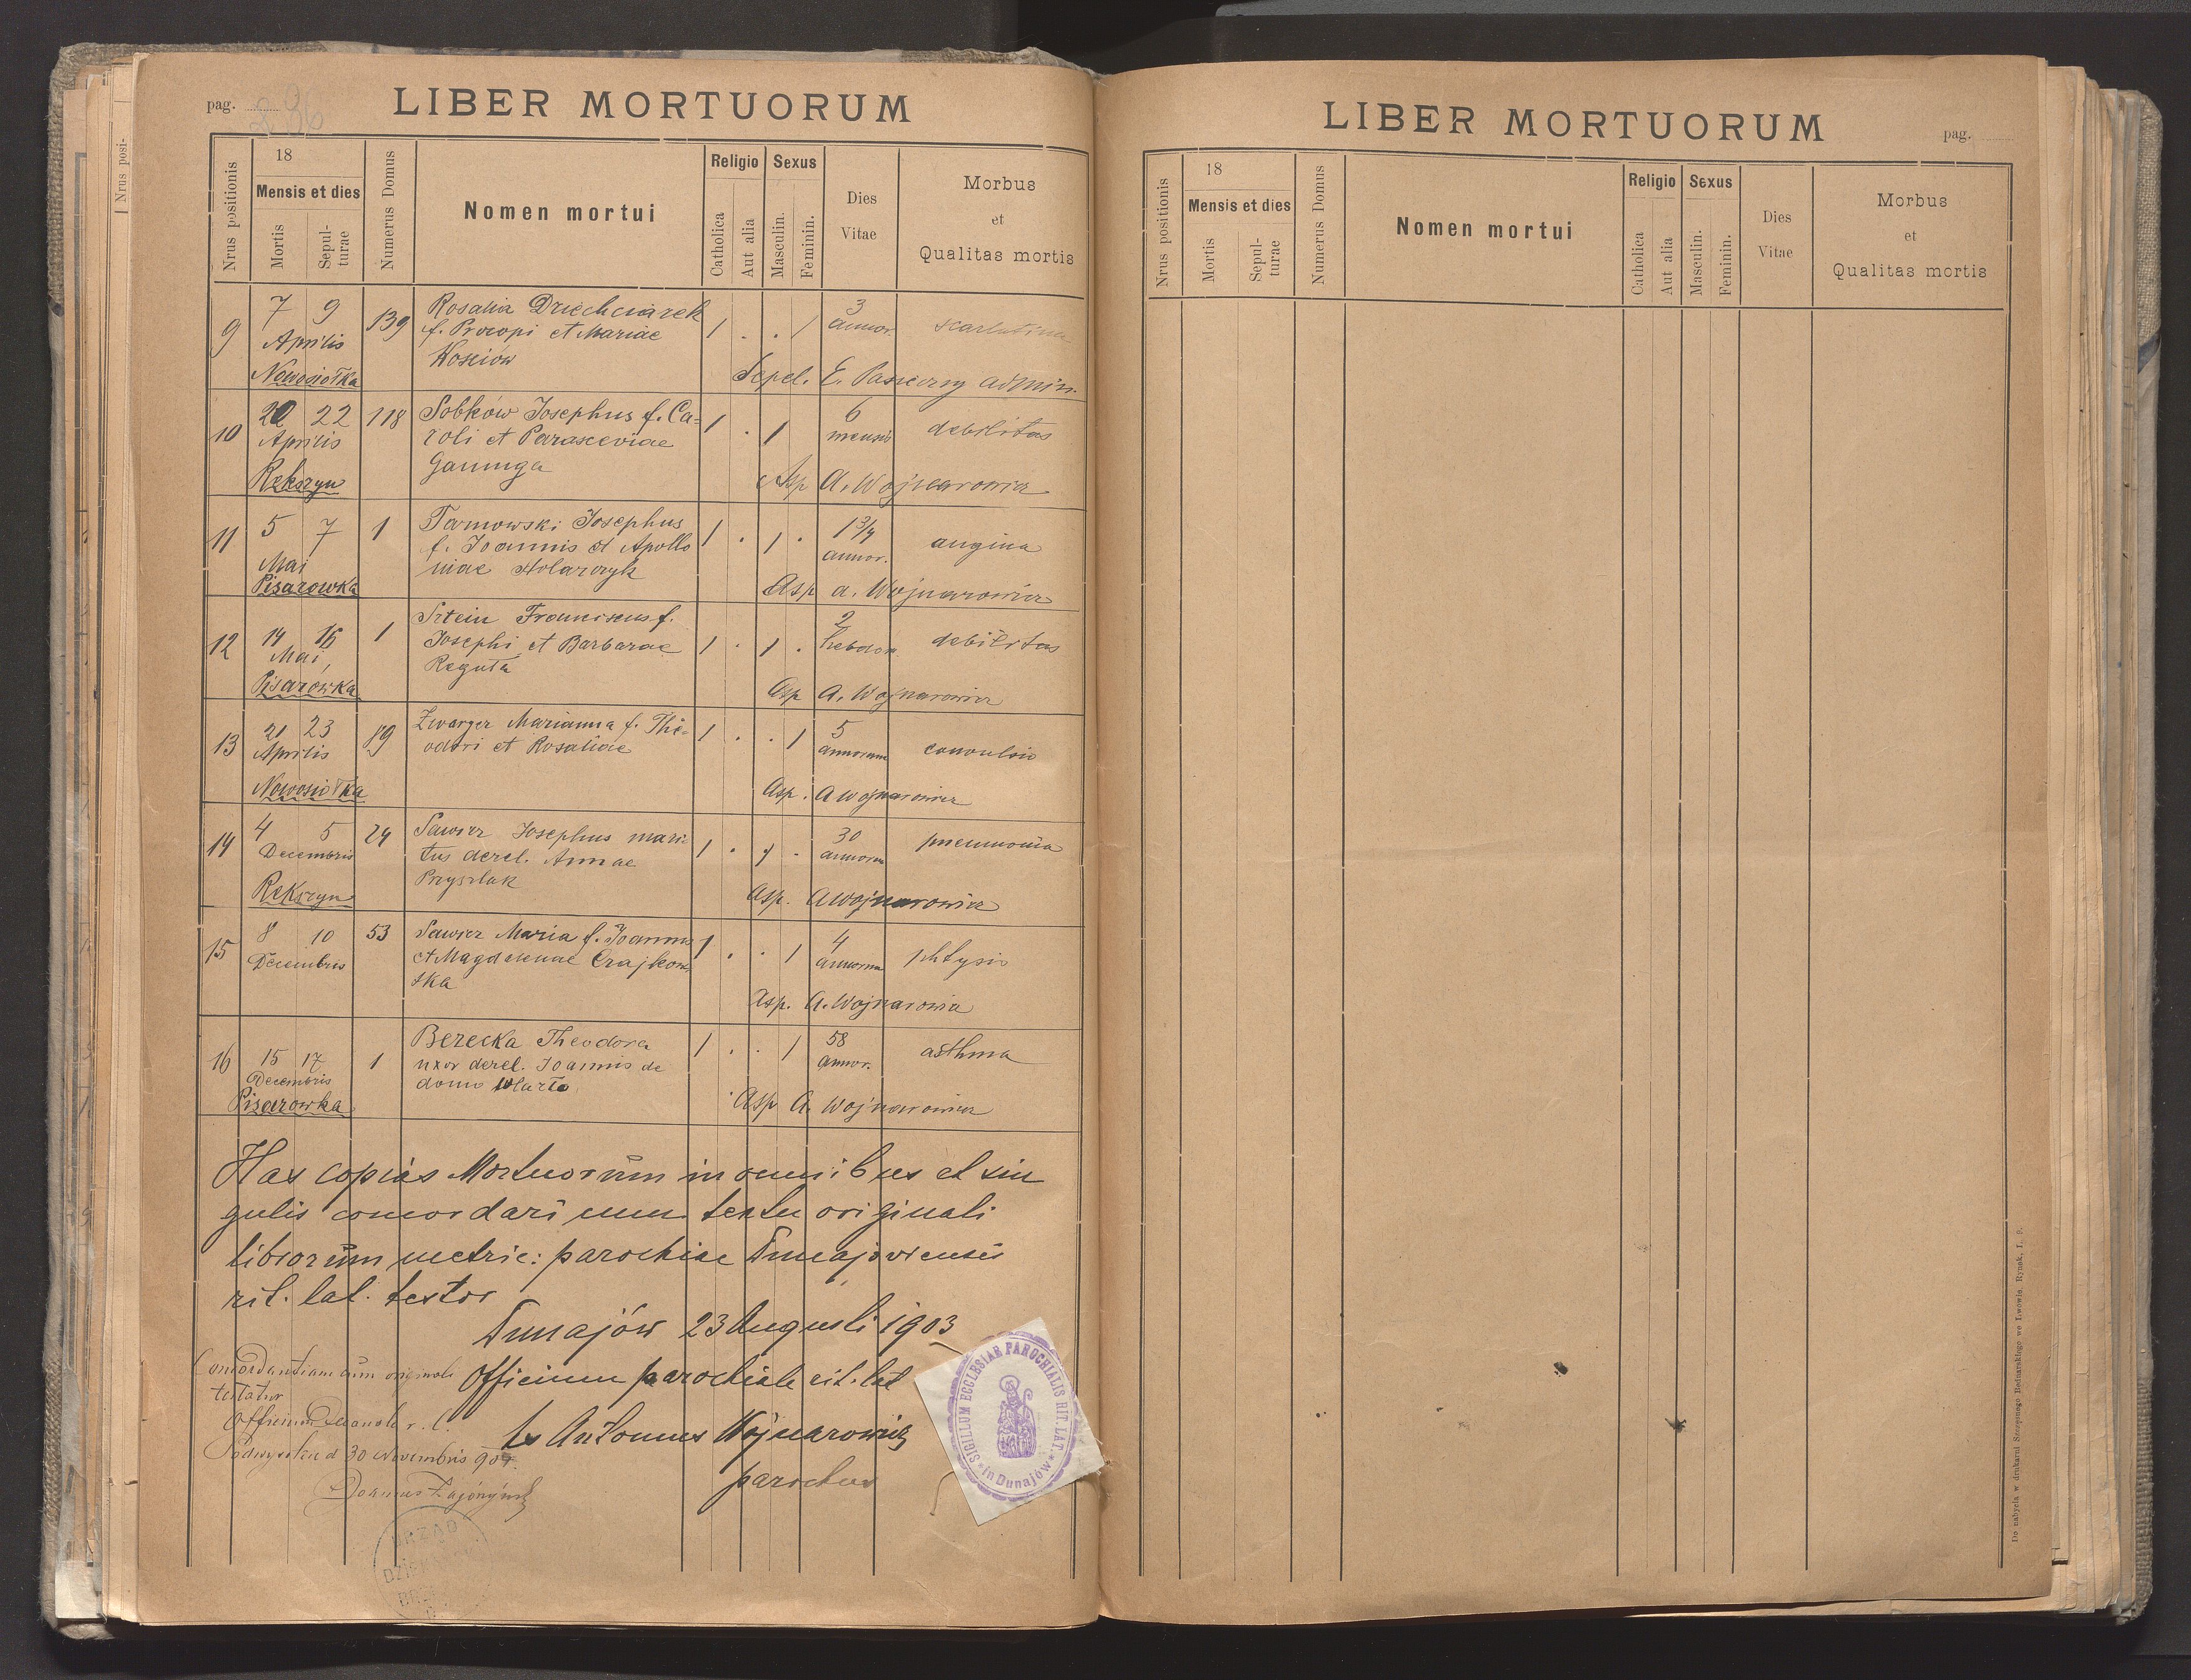 pag.
LIBER MORTUORUM
Nrus positionis
18
Mensis et dies
Mortis
Sepulturae
Numerus Domus
Nomen mortui
Religio
Catholica
Aut alia
Sexus
Masculin.
Feminin.
Dies
Vitae
Morbus
et
Qualitas mortis
9 7 9 139 Rosalia Dziechciarek 1 . . 1 3 scarlatina
Aprilis f. Procopi et Mariae annor.
Nowosiołka Kosciów Sepel. E. Passieczny admin.
10 20 22 118 Sobków Josephus f. Ca= 1 . 1 6 debilitas
Aprilis roli et Parasceviae mensis
Rekszyn Gaunga Asp A. Wojnarowicz
11 5 7 1 Tarnowski Josephus 1 . 1 . 1 3/4 angina
Mai f. Joannis et Apollo annor.
Pisarowka niae Stolarczyk Asp A. Wojnarowicz
12 14 16 1 Sztein Franciscus f. 1 . 1 . 2 debilitas
Mai Josephi et Barbarae hebdom
Pisarówka Reguła Asp A. Wojnarowicz
13 21 23 89 Zwarger Marianna f. The= 1 . . 1 5 convulsio
Aprilis odori et Rosaliae annorum
Nowosiołka Asp. A Wojnarowicz
14 4 5 24 Sawicz Josephus mari 1 . 1 . 30 pneumonia
Decembris tus derel. Annae annorum
Rekszyn Przyszlak Asp. A Wojnarowicz
15 8 10 53 Sawicz Maria f. Joannis 1 . . 1 4 phtysis
Decembris et Magdalenae Czajkow annorum
ska Asp. A. Wojnarowicz
16 15 17 1 Berecka Theodora 1 . . 1 58 asthma
Decembris uxor derel. Joannis de annor.
Pisarowka domo Asp A. Wojnarowicz
Has copias Mortuorum in omnibus et sin
gulis concordari cum textu originali
librorum metric: parochiae Dunajoviensis
rit. lat. testor
Dunajów 23 Augusti 1903
Officium parochiale rit. lat
Antonius Wojnarowicz
parochus
Concordantiam cum originali
testatur
Officium Decanale r. l.
d 30 Novembris
SIGILLUM ECCLESIAE PAROCHIALIS RIT. LAT.
in Dunajów
URZĄD
LIBER MORTUORUM
pag.
Nrus positionis
18
Mensis et dies
Mortis
Sepulturae
Numerus Domus
Nomen mortui
Religio
Catholica
Aut alia
Sexus
Masculin.
Feminin.
Dies
Vitae
Morbus
et
Qualitas mortis
Do nabycia w drukarni Szczęsnego Bednarskiego we Lwowie Rynek, l. 9.
Nrus posi-